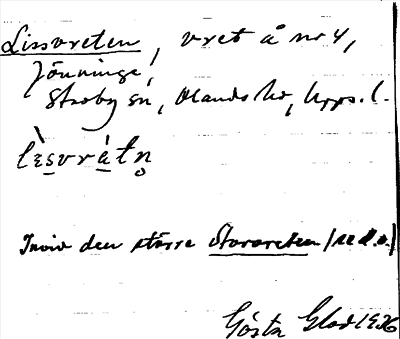 Lissvreten, vret å nr 4,
Jönninge,
Skoby sn, Olands hd, Upps. l.
lèsvrátn̥
Invid den större Storvreten (se d.o.)
Gösta Glad 1936